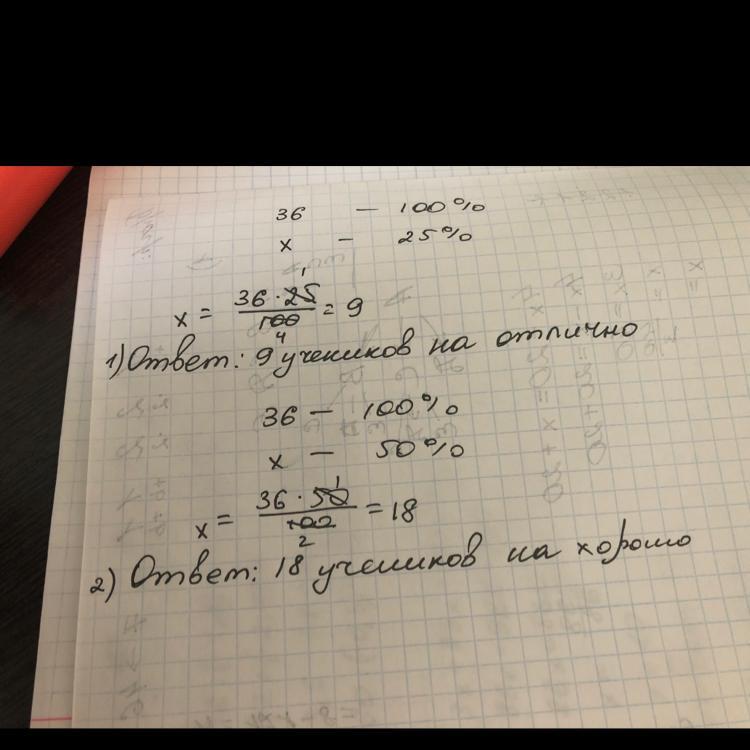 36 — 100%
x — 25%
x = 36 · 25 / 100 = 9
1) Ответ: 9 учеников на отлично
36 — 100%
x — 50%
x = 36 · 50 / 100 = 18
2) Ответ: 18 учеников на хорошо